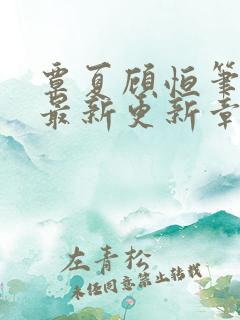 覃夏顾恒笔
最新更新章
左青松
未经同意禁止转载